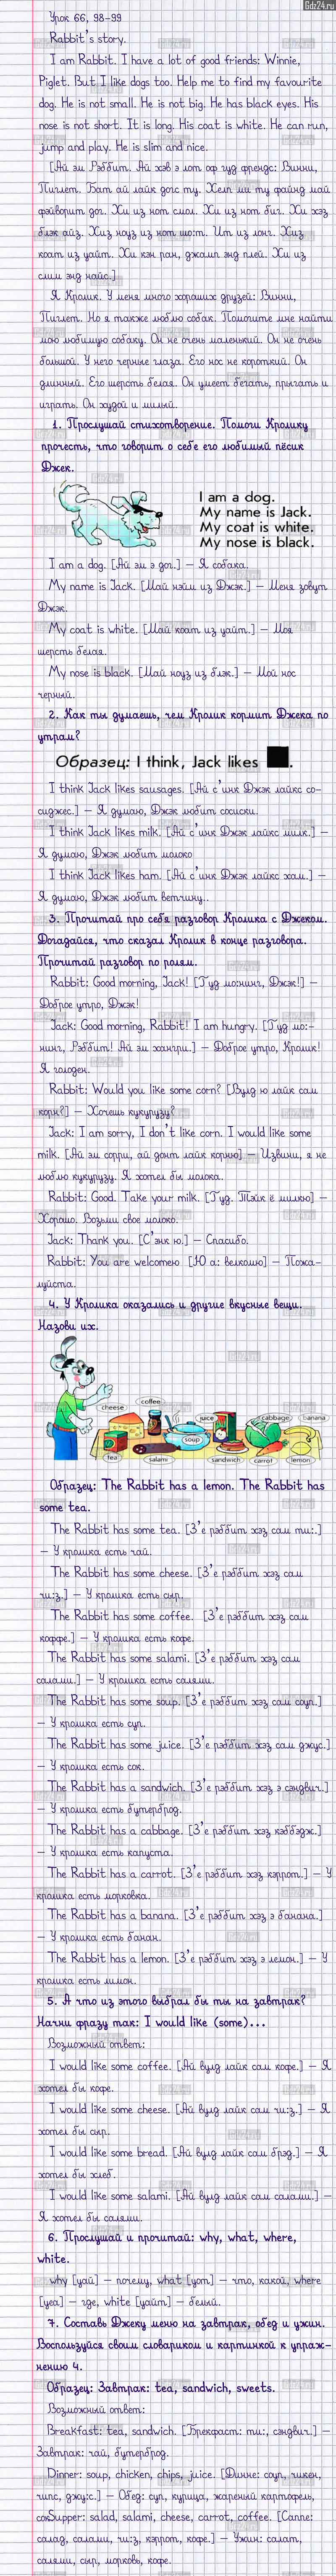 Gdz24.ru
Урок 66, 98-99
Rabbit's story.
I am Rabbit. I have a lot of good friends: Winnie,
Piglet. But I like dogs too. Help me to find my favourite
dog. He is not small. He is not big. He has black eyes. His
nose is not short. It is long. His coat is white. He can run,
jump and play. He is slim and nice.
[Ай эм Рэббит. Ай хэв э лот оф гуд френдс: Винни,
Пиглет. Бат ай лайк догс ту. Хелп ми ту файнд май
фэйворит дог. Хи из нот смол. Хи из нот биг. Хи хэз
блэк айз. Хиз ноуз из нот шот. Ит из лонг. Хиз
коат из уайт. Хи кэн ран, джамп энд плей. Хи из
слим энд найс.]
Я Кролик. У меня много хороших друзей: Винни,
Пиглет. Но я также люблю собак. Помогите мне найти
мою любимую собаку. Он не очень маленький. Он не очень
большой. У него черные глаза. Его нос не короткий. Он
длинный. Его шерсть белая. Он умеет бегать, прыгать и
играть. Он худой и милый.
1. Прослушай стихотворение. Помоги Кролику
прочесть, что говорит о себе его любимый пёсик
Джек.
I am a dog.
My name is Jack.
My coat is white.
My nose is black.
I am a dog. [Ай эм э дог.] – Я собака.
My name is Jack. [Май нэйм из Джэк.] – Меня зовут
Джэк.
My coat is white. [Май коат из уайт.] – Моя
шерсть белая.
My nose is black. [Май ноуз из блэк.] – Мой нос
черный.
2. Как ты думаешь, чем Кролик кормит Джека по
утрам?
Образец: I think, Jack likes ■.
I think Jack likes sausages. [Ай с'инк Джэк лайкс со-
сиджес.] – Я думаю, Джэк любит сосиски.
I think Jack likes milk. [Ай с'инк Джэк лайкс милк.] –
Я думаю, Джэк любит молоко
I think Jack likes ham. [Ай с'инк Джэк лайкс хам.] –
Я думаю, Джэк любит ветчину.
3. Прочитай про себя разговор Кролика с Джеком.
Догадайся, что сказал Кролик в конце разговора.
Прочитай разговор по ролям.
Rabbit: Good morning, Jack! [Гуд мо:нинг, Джэк!] –
Доброе утро, Джэк!
Jack: Good morning, Rabbit! I am hungry. [Гуд мо:-
нинг, Рэббит! Ай эм хангри.] – Доброе утро, Кролик!
Я голоден.
Rabbit: Would you like some corn? [Вулд ю лайк сам
корн?] – Хочешь кукурузу?
Jack: I am sorry, I don't like corn. I would like some
milk. [Ай эм сорри, ай донт лайк корню] – Извини, я не
люблю кукурузу. Я хотел бы молока.
Rabbit: Good. Take your milk. [Гуд. Тэйк ё милкю] –
Хорошо. Возьми свое молоко.
Jack: Thank you. [С'энк ю.] – Спасибо.
Rabbit: You are welcomeю [Ю а: велкамю] – Пожа-
луйста.
4. У Кролика оказались и другие вкусные вещи.
Назови их.
coffee
cheese
juice
cabbage
banana
soup
tea
salami
sandwich
carrot
lemon
Образец: The Rabbit has a lemon. The Rabbit has
some tea.
The Rabbit has some tea. [З'е рэббит хэз сам ти:.]
– У кролика есть чай.
The Rabbit has some cheese. [З'е рэббит хэз сам
чи:з.] – У кролика есть сыр.
The Rabbit has some coffee. [З'е рэббит хэз сам
коффе.] – У кролика есть кофе.
The Rabbit has some salami. [З'е рэббит хэз сам
салами.] – У кролика есть салями.
The Rabbit has some soup. [З'е рэббит хэз сам соуп.]
– У кролика есть суп.
The Rabbit has some juice. [З'е рэббит хэз сам джус.]
– У кролика есть сок.
The Rabbit has a sandwich. [З'е рэббит хэз э сэндвич.]
– У кролика есть бутерброд.
The Rabbit has a cabbage. [З'е рэббит хэз кэббэдж.]
– У кролика есть капуста.
The Rabbit has a carrot. [З'е рэббит хэз кэррот.] – У
кролика есть морковка.
The Rabbit has a banana. [З'е рэббит хэз э банана.]
– У кролика есть банан.
The Rabbit has a lemon. [З'е рэббит хэз э лемон.] – У
кролика есть лимон.
5. А что из этого выбрал бы ты на завтрак?
Начни фразу так: I would like (some)...
Возможный ответ:
I would like some coffee. [Ай вулд лайк сам кофе.] – Я
хотел бы кофе.
I would like some cheese. [Ай вулд лайк сам чи:з.] – Я
хотел бы сыр.
I would like some bread. [Ай вулд лайк сам брэд.] – Я
хотел бы хлеб.
I would like some salami. [Ай вулд лайк сам салами.] –
Я хотел бы салями.
6. Прослушай и прочитай: why, what, where,
white.
why [уай] – почему, what [уот] – что, какой, where
[уеа] – где, white [уайт] – белый.
7. Составь Джеку меню на завтрак, обед и ужин.
Воспользуйся своим словариком и картинкой к упраж-
нению 4.
Образец: Завтрак: tea, sandwich, sweets.
Возможный ответ:
Breakfast: tea, sandwich. [Брекфаст: ти:, сэндвич.] –
Завтрак: чай, бутерброд.
Dinner: soup, chicken, chips, juice. [Динне: соуп, чикен,
чипс, джу:с.] – Обед: суп, курица, жареный картофель,
сокSupper: salad, salami, cheese, carrot, coffee. [Саппе:
салад, салами, чи:з, кэррот, кофе.] – Ужин: салат,
салями, сыр, морковь, кофе.